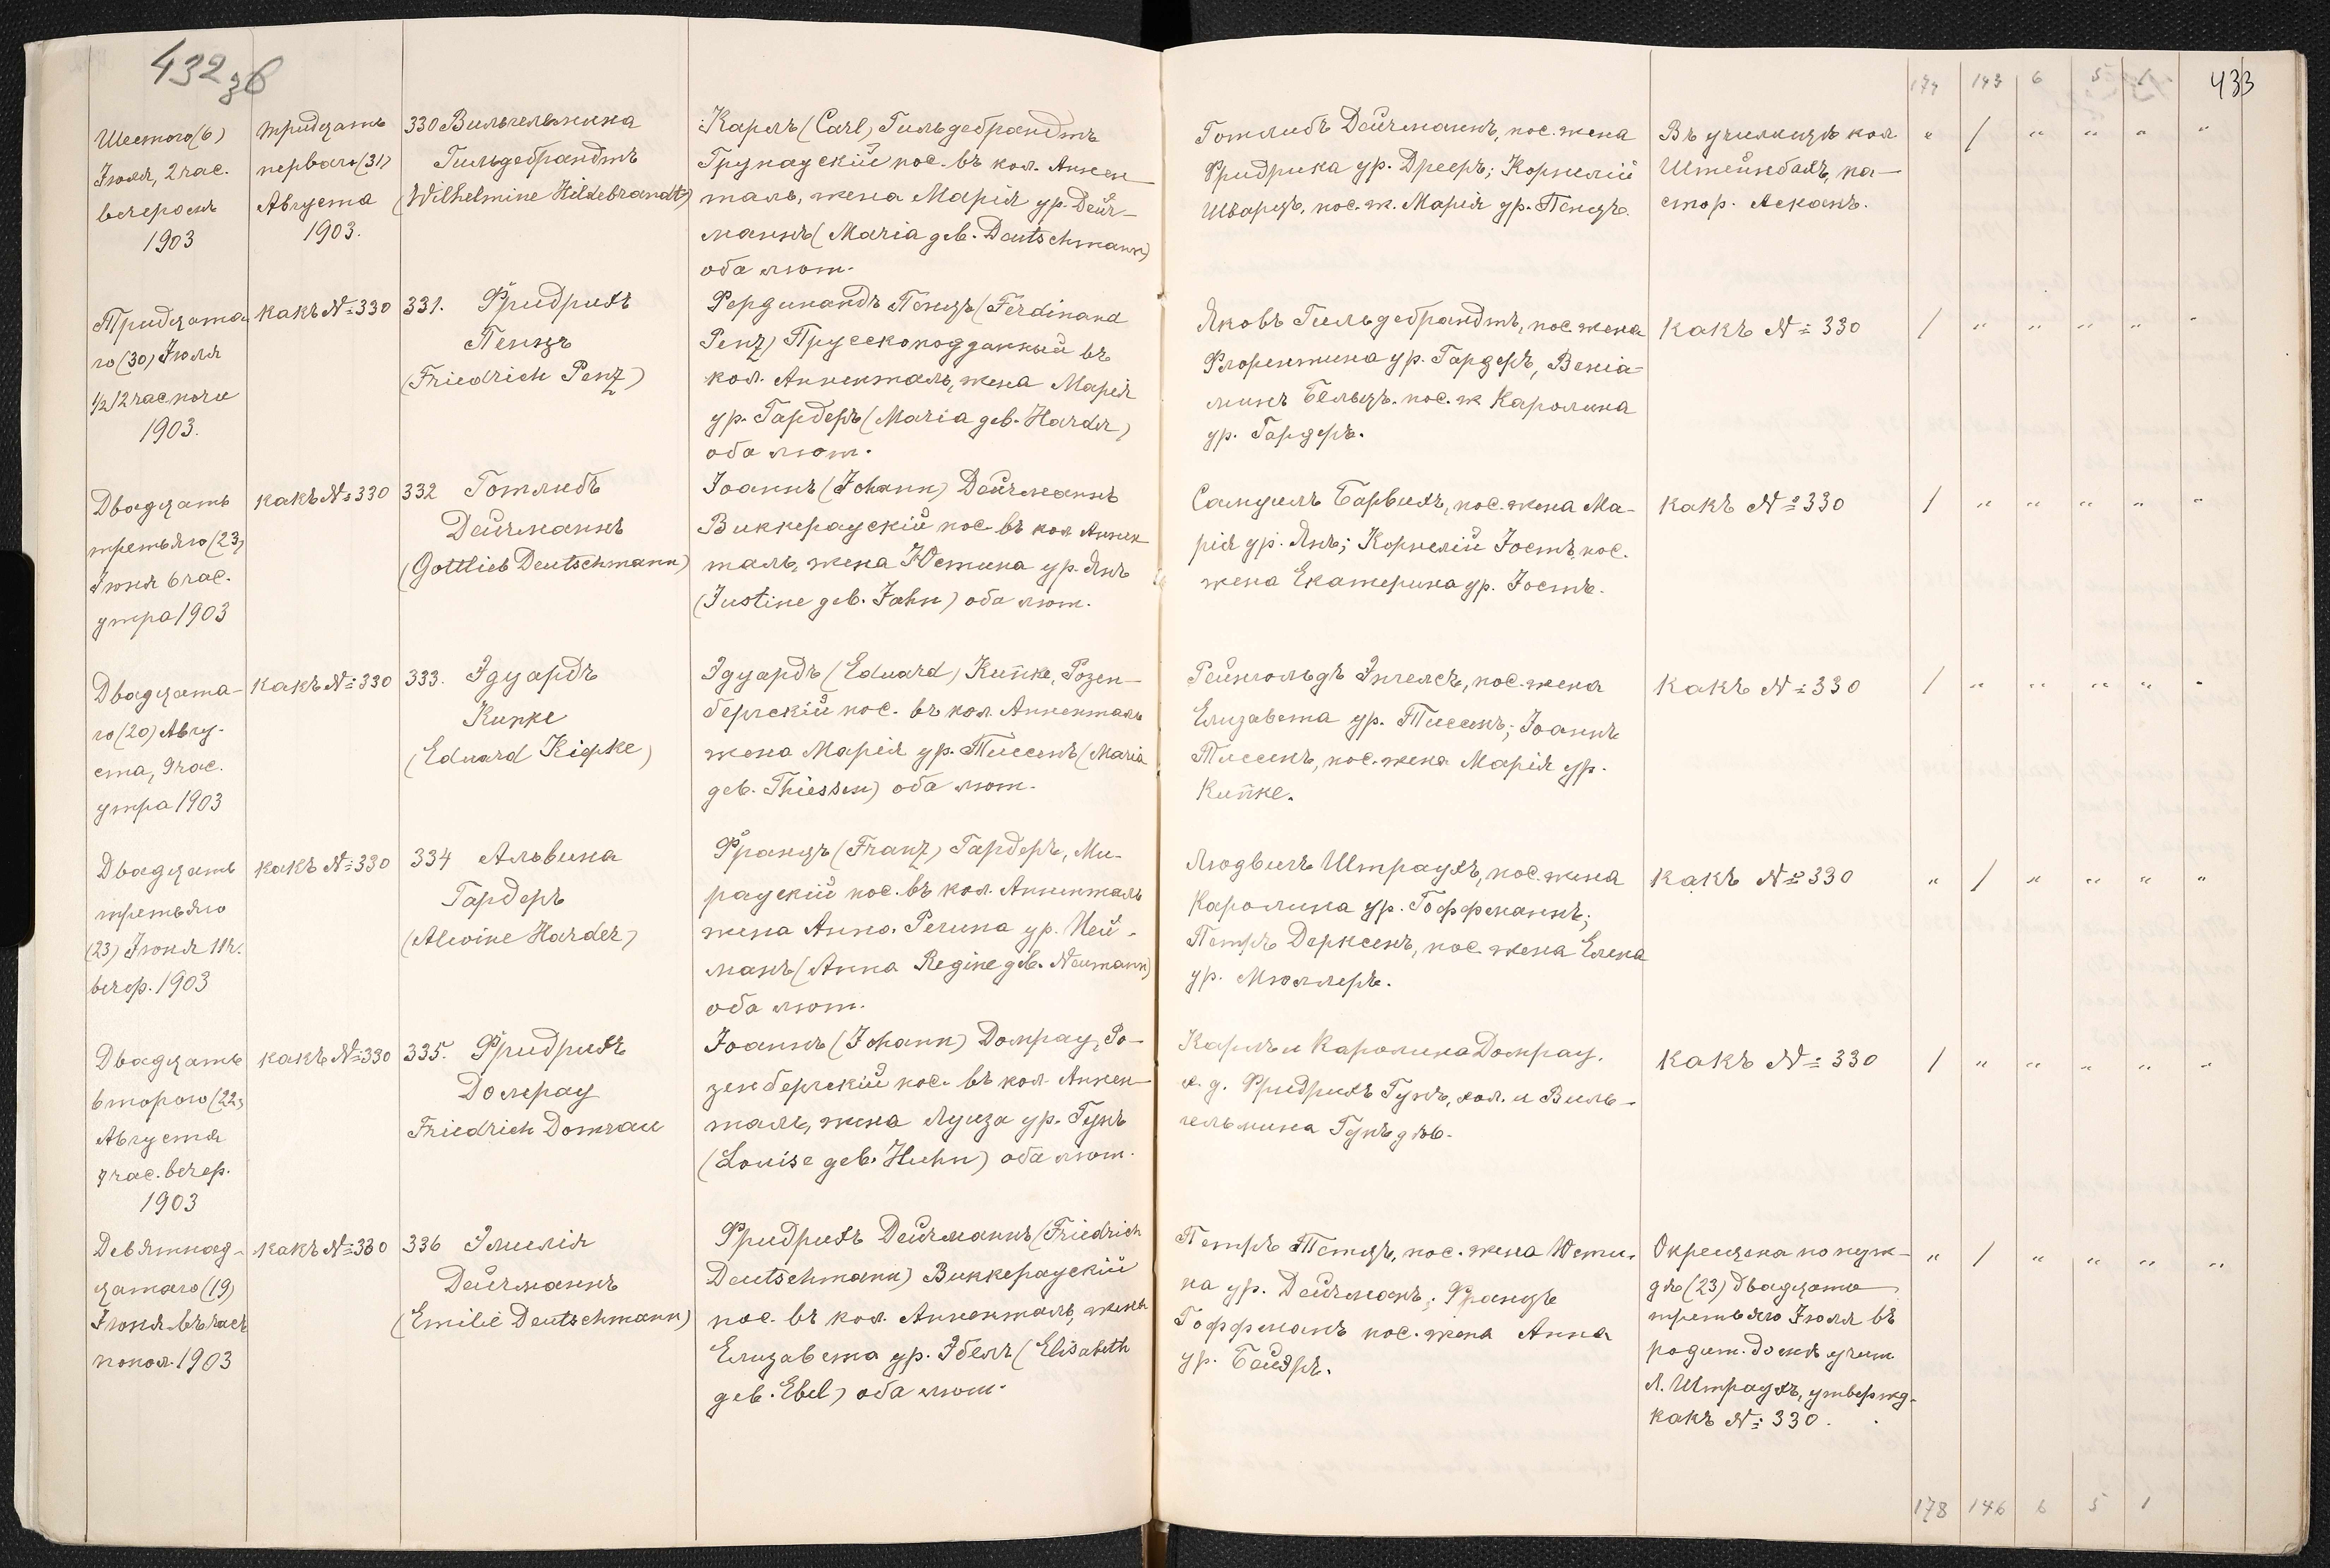 432 зв
433
174 143 6 5 1
Шестого (6)
Іюля, 2 час.
вечеромъ
1903
тридцать
перваго (31)
Августа
1903.
330 Вильгельмина
Гильдебрандтъ
(Wilhelmine Hildebrandt)
Карлъ (Carl) Гильдебрандтъ
Грунаускій пос. въ кол. Аннен-
таль, жена Марія ур. Дейч-
маннъ (Maria geb. Deutschmann)
оба лют.
Готлибъ Дейчманнъ, пос. жена
Фридрика ур. Дрееръ; Корнелій
Шварцъ, пос. ж. Марія ур. Пенцъ.
Въ училищѣ кол
Штейнбахъ, па-
стор. Асканъ.
" / " " " "
Тридцата-
го (30) Іюля
1/2 12 час ночи
1903.
какъ №330
331. Фридрихъ
Пенцъ
(Friedrich Penz)
Фердинандъ Пенцъ (Ferdinand
Penz) Прусскоподданный въ
кол. Анненталь, жена Марія
ур. Гардеръ (Maria geb. Harder)
оба лют.
Яковъ Гильдебрандтъ, пос жена
Флорентина ур. Гардеръ, Веніа-
минъ Бельцъ. пос. ж Каролина
ур. Гардеръ.
какъ № 330
/ " " " " "
Двадцать
третьяго (23)
Іюня 6 час.
утра 1903
какъ №330
332 Готлибъ
Дейчманнъ
(Gottlieb Deutschmann)
Іоаннъ (Johann) Дейчманнъ
Виккераускій пос въ кол Аннен
таль, жена Юстина ур. Янъ
(Justine geb. Jahn) оба лют.
Самуилъ Барвихъ, пос. жена Ма-
рія ур. Янъ; Корнелій Іостъ, пос.
жена Екатерина ур. Іостъ.
какъ № 330
/ " " " " "
Двадцата-
го (20) Авгу-
ста, 9 час.
утра 1903
какъ №330
333. Эдуардъ
Кипке
(Eduard Kipke)
Эдуардъ (Eduard) Кипке, Розен-
бергскій пос. въ кол. Анненталь
жена Марія ур. Тиссенъ (Maria
geb. Thiessen) оба лют.
Рейнгольдъ Энгелсъ, пос. жена
Елизавета ур. Тиссенъ; Іоаннъ
Тиссенъ, пос. жена Марія ур.
Кипке.
какъ № 330
/ " " " " "
Двадцать
третьяго
(23) Іюня 11 ч.
вечер. 1903
какъ №330
334 Альвина
Гардеръ
(Alwine Harder)
Францъ (Franz) Гардеръ, Ми-
раускій пос. въ кол. Анненталь
жена Анна Регина ур. Ней-
манъ (Anna Regine geb. Neumann)
оба лют.
Людвигъ Штраухъ, пос. жена
Каролина ур. Гоффманнъ;
Петръ Дерксенъ, пос жена Елена
ур. Мюллеръ.
какъ № 330
" / " " " "
Двадцать
второго (22)
Августа
час. вечер.
1903
какъ №330
335. Фридрихъ
Домрау
Friedrich Domrau
Іоаннъ (Johann) Домрау, Ро-
зенбергскій пос. въ кол. Аннен-
таль, жена Луиза ур. Гунъ
(Louise geb. Huhn) оба лют.
Карлъ и Каролина Домрау,
х. д. Фридрихъ Гунъ, хол. и Виль-
гельмина Гунъ дѣв.
какъ № 330
/ " " " " "
Девятнад-
цатаго (19)
Іюня въ часъ
пополн. 1903
какъ №330
336 Эмилія
Дейчманнъ
(Emilie Deutschmann)
Фридрихъ Дейчманнъ (Friedrich
Deutschmann) Виккераускій
пос. въ кол. Анненталь, жена
Елизавета ур. Эбель (Elisabeth
geb. Ebel) оба лют.
Петръ Пенцъ, пос. жена Юсти-
на ур. Дейчманъ; Францъ
Гоффманъ пос. жена Анна
ур. Бандръ.
Окрещена по нуж-
дѣ (23) двадцать
третьяго Іюля въ
родит. домѣ учит
Л. Штраухъ, утвержд.
какъ № 330.
" / " " " "
178 146 6 5 1